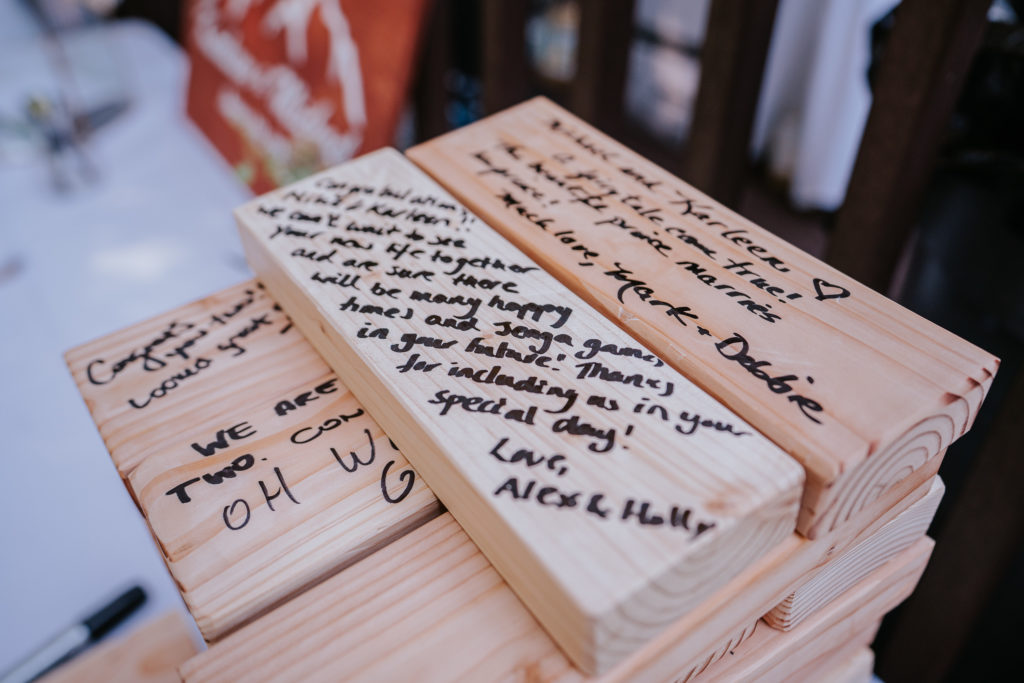 Congratulations!!
& Karleen!
we can't wait to see
your new life together
and are sure there
will be many happy
times and Jenga games
in your future! Thanks
for including us in your
special day!
Love,
Alex & Holly
and Karleen,
a fairytale come true!
The prince marries
Much love, Mark + Debbie
Congrats
on your
would
WE ARE
TWO. CON
OH W
G